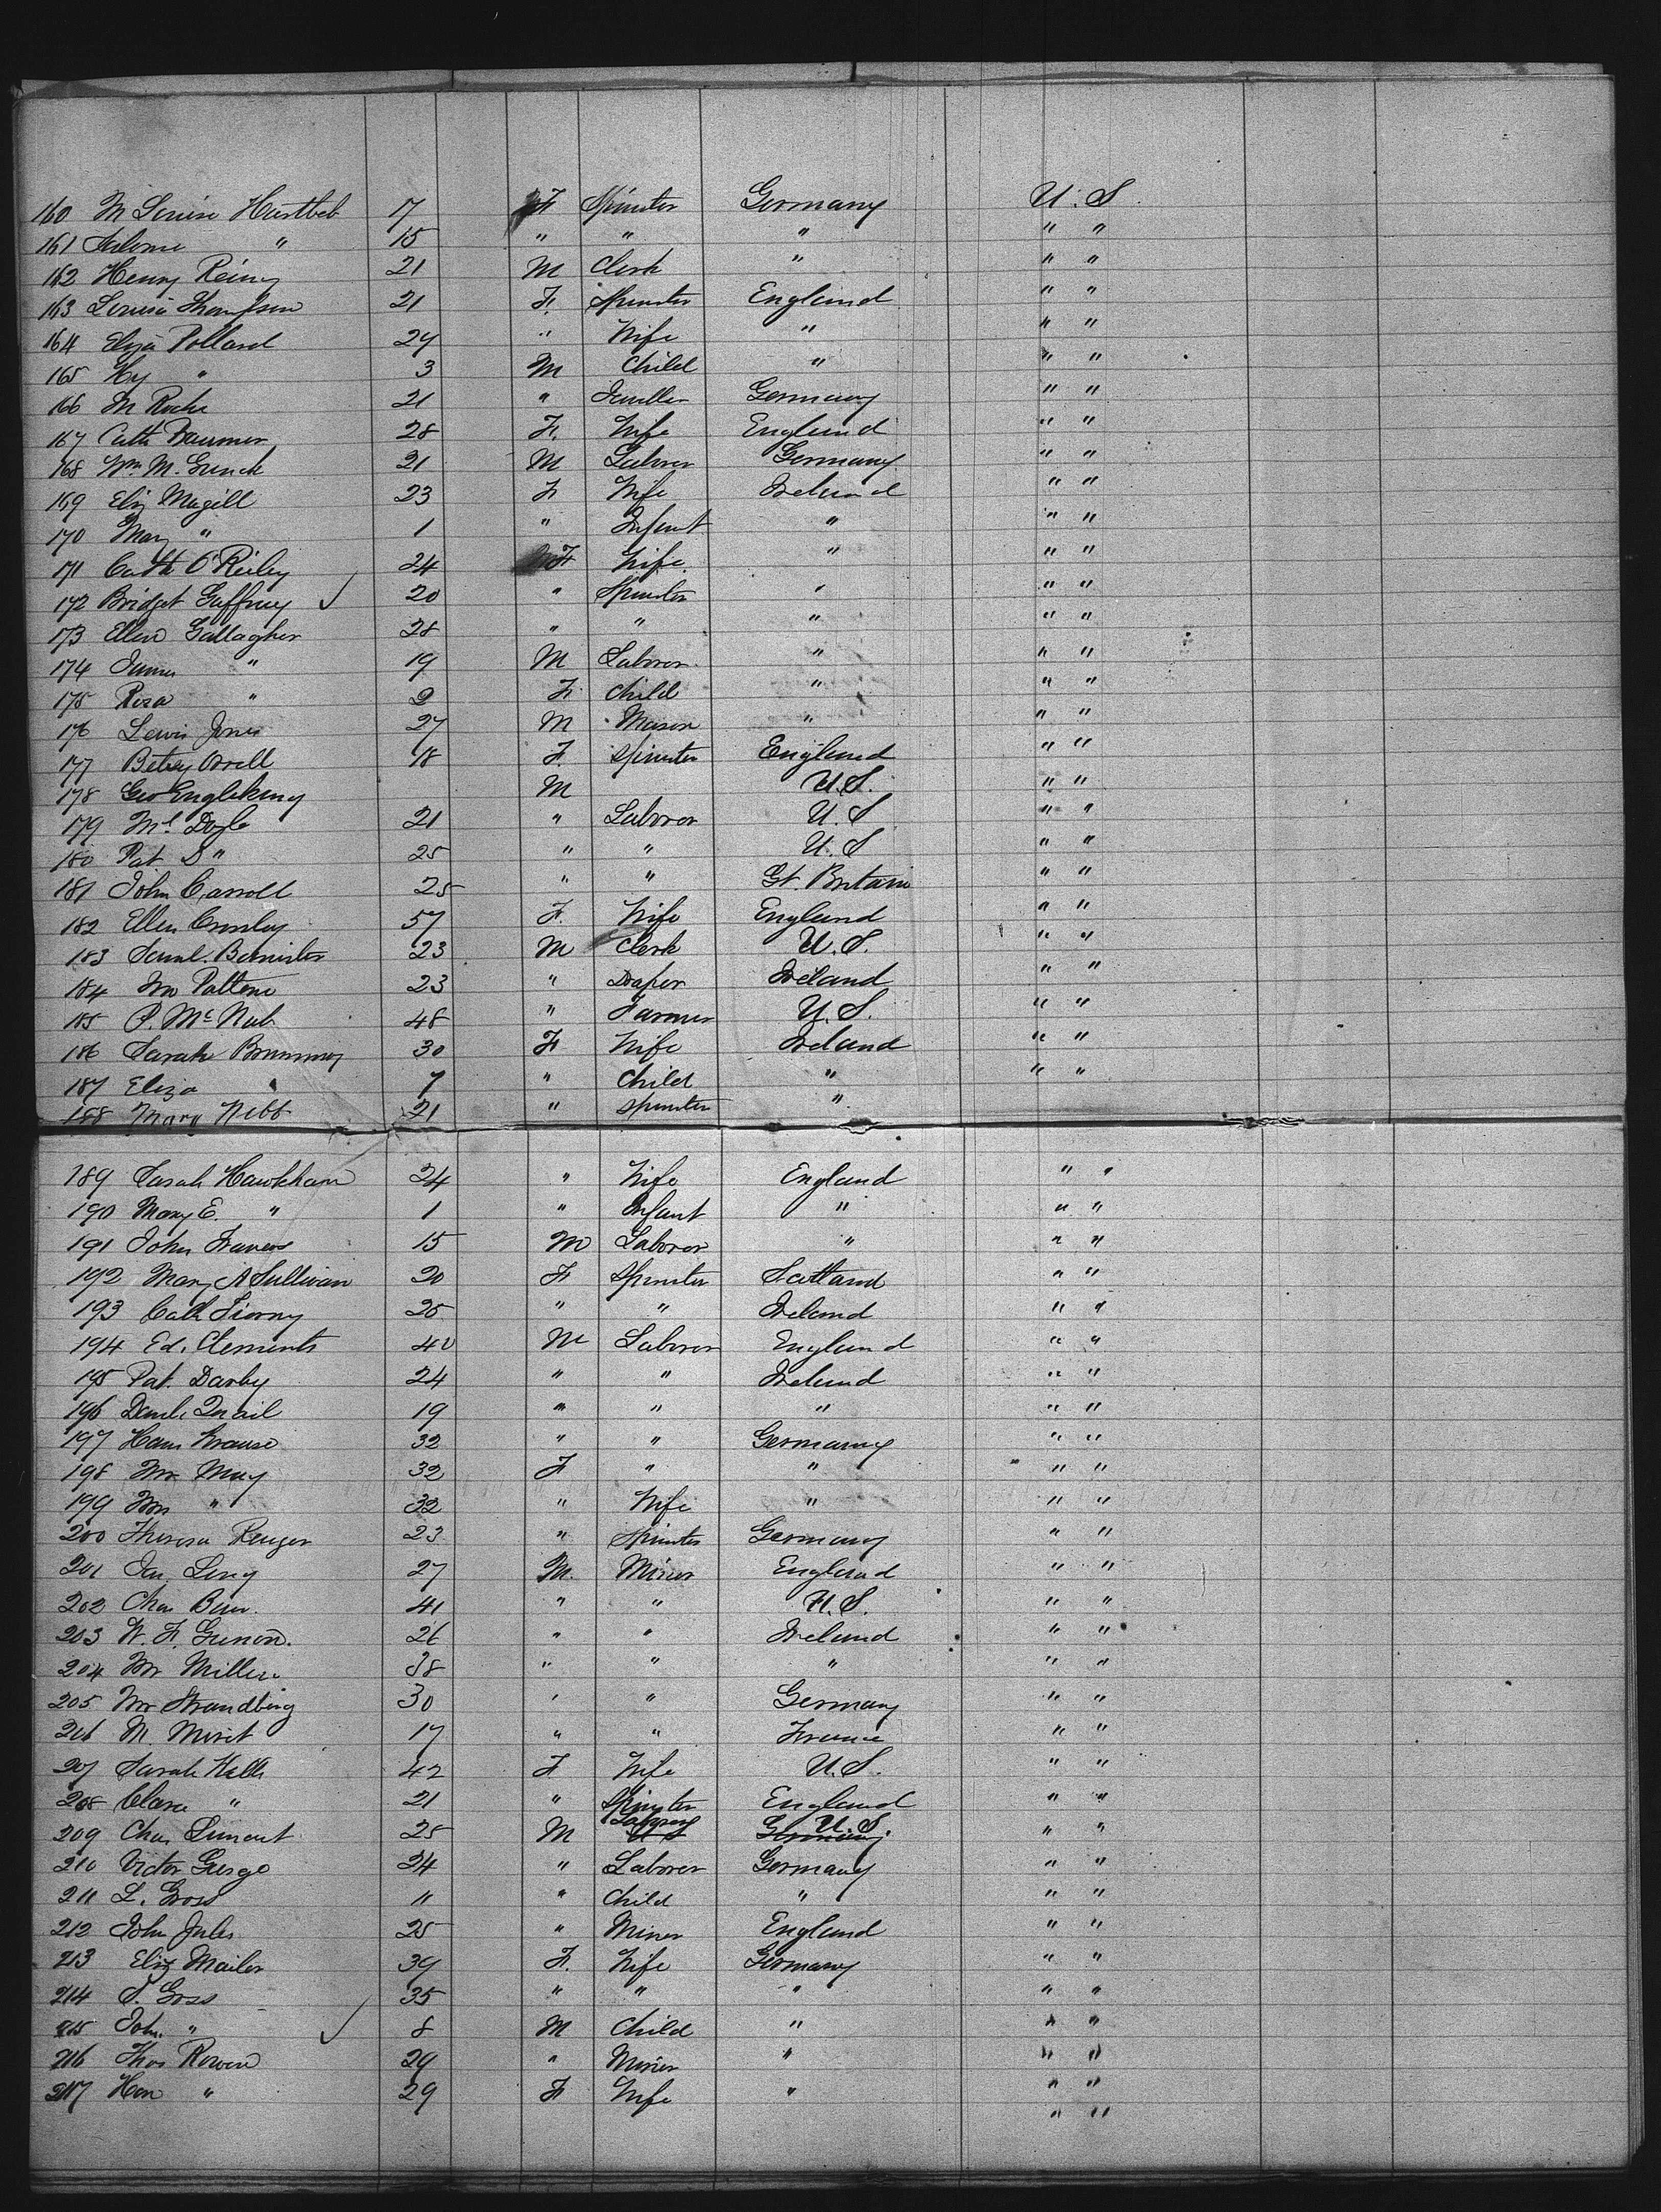 160 M Louise Hustbeb 17 F Spinster Germany U. S.
161 " 15 " " " " "
162 Henry Reing 21 M Clerk " " "
163 Louisa Thompson 21 F. Spinster England " "
164 Eliza Pollard 29 " Wife " " "
165 Hy " 3 M Child " " "
166 M Roche 21 " Jeweller Germany " "
167 Cath 28 F. Wife England " "
168 Wm M. 21 M Laborer Germany " "
169 Eliz Magill 23 F Wife Ireland " "
170 Mary " 1 " Infant " " "
171 Cath O'Reiley 24 F Wife. " " "
172 Bridget Gaffney ✓ 20 " Spinster " " "
173 Ellen Gallagher 28 " " " " "
174 James " 19 M Laborer " " "
175 Rosa " 2 F. Child " " "
176 Lewis Jones 27 M Mason " " "
177 Betsy Orell 18 F. Spinster England " "
178 Geo Engleking M U.S. " "
179 Ml Doyle 21 " Laborer U. S " "
180 Pat D " 25 " " U. S " "
181 John Carroll 25 " " Gt. Britain " "
182 Ellen Crosley 57 F. Wife England " "
183 Saml. Banister 23 M Clerk U. S. " "
184 Wm 23 " Draper Ireland " "
185 P. McNab 48 " Farmer U. S. " "
186 Sarah 30 F Wife Ireland " "
187 Eliza " 7 " Child " " "
188 Mary Webb 21 " Spinster "
189 Sarah Hawkham 24 " Wife England " "
190 Mary E. " 1 " Infant " " "
191 John Travers 15 M Laborer " " "
192 Mary A Sullivan 20 F Spinster Scotland " "
193 Cath 25 " " Ireland " "
194 Ed. Clements 40 M Laborer England " "
195 Pat. Darby 24 " " Ireland " "
196 Quail 19 " " " " "
197 Hans Krause 32 " " Germany " "
198 Mr May 32 F " " " "
199 Mrs " 32 " Wife " " "
200 Theresa Renger 23 " Spinster Germany " "
201 Jas. Long 27 M. Miner England " "
202 Chas 41 " " U. S. " "
203 W. F. 26 " " Ireland " "
204 Wm Miller 38 " " " " "
205 Wm Strandberg 30 ' " Germany " "
206 M. 17 " " France " "
207 Sarah Walls 42 F Wife U. S. " "
208 Clara " 21 " Spinster England " "
209 Chas 25 M Laborer U S Germany U. S. " "
210 Victor 24 " Laborer Germany " "
211 L. Gross 11 " Child " " "
212 John Jules 25 " Miner England " "
213 Eliz Mailer 39 F. Wife Germany " "
214 S. Goss 35 " " " " "
215 John " ✓ 8 M Child " " "
216 Thos Rowen 29 " Miner " " "
217 Han " 29 F Wife " " "
" "